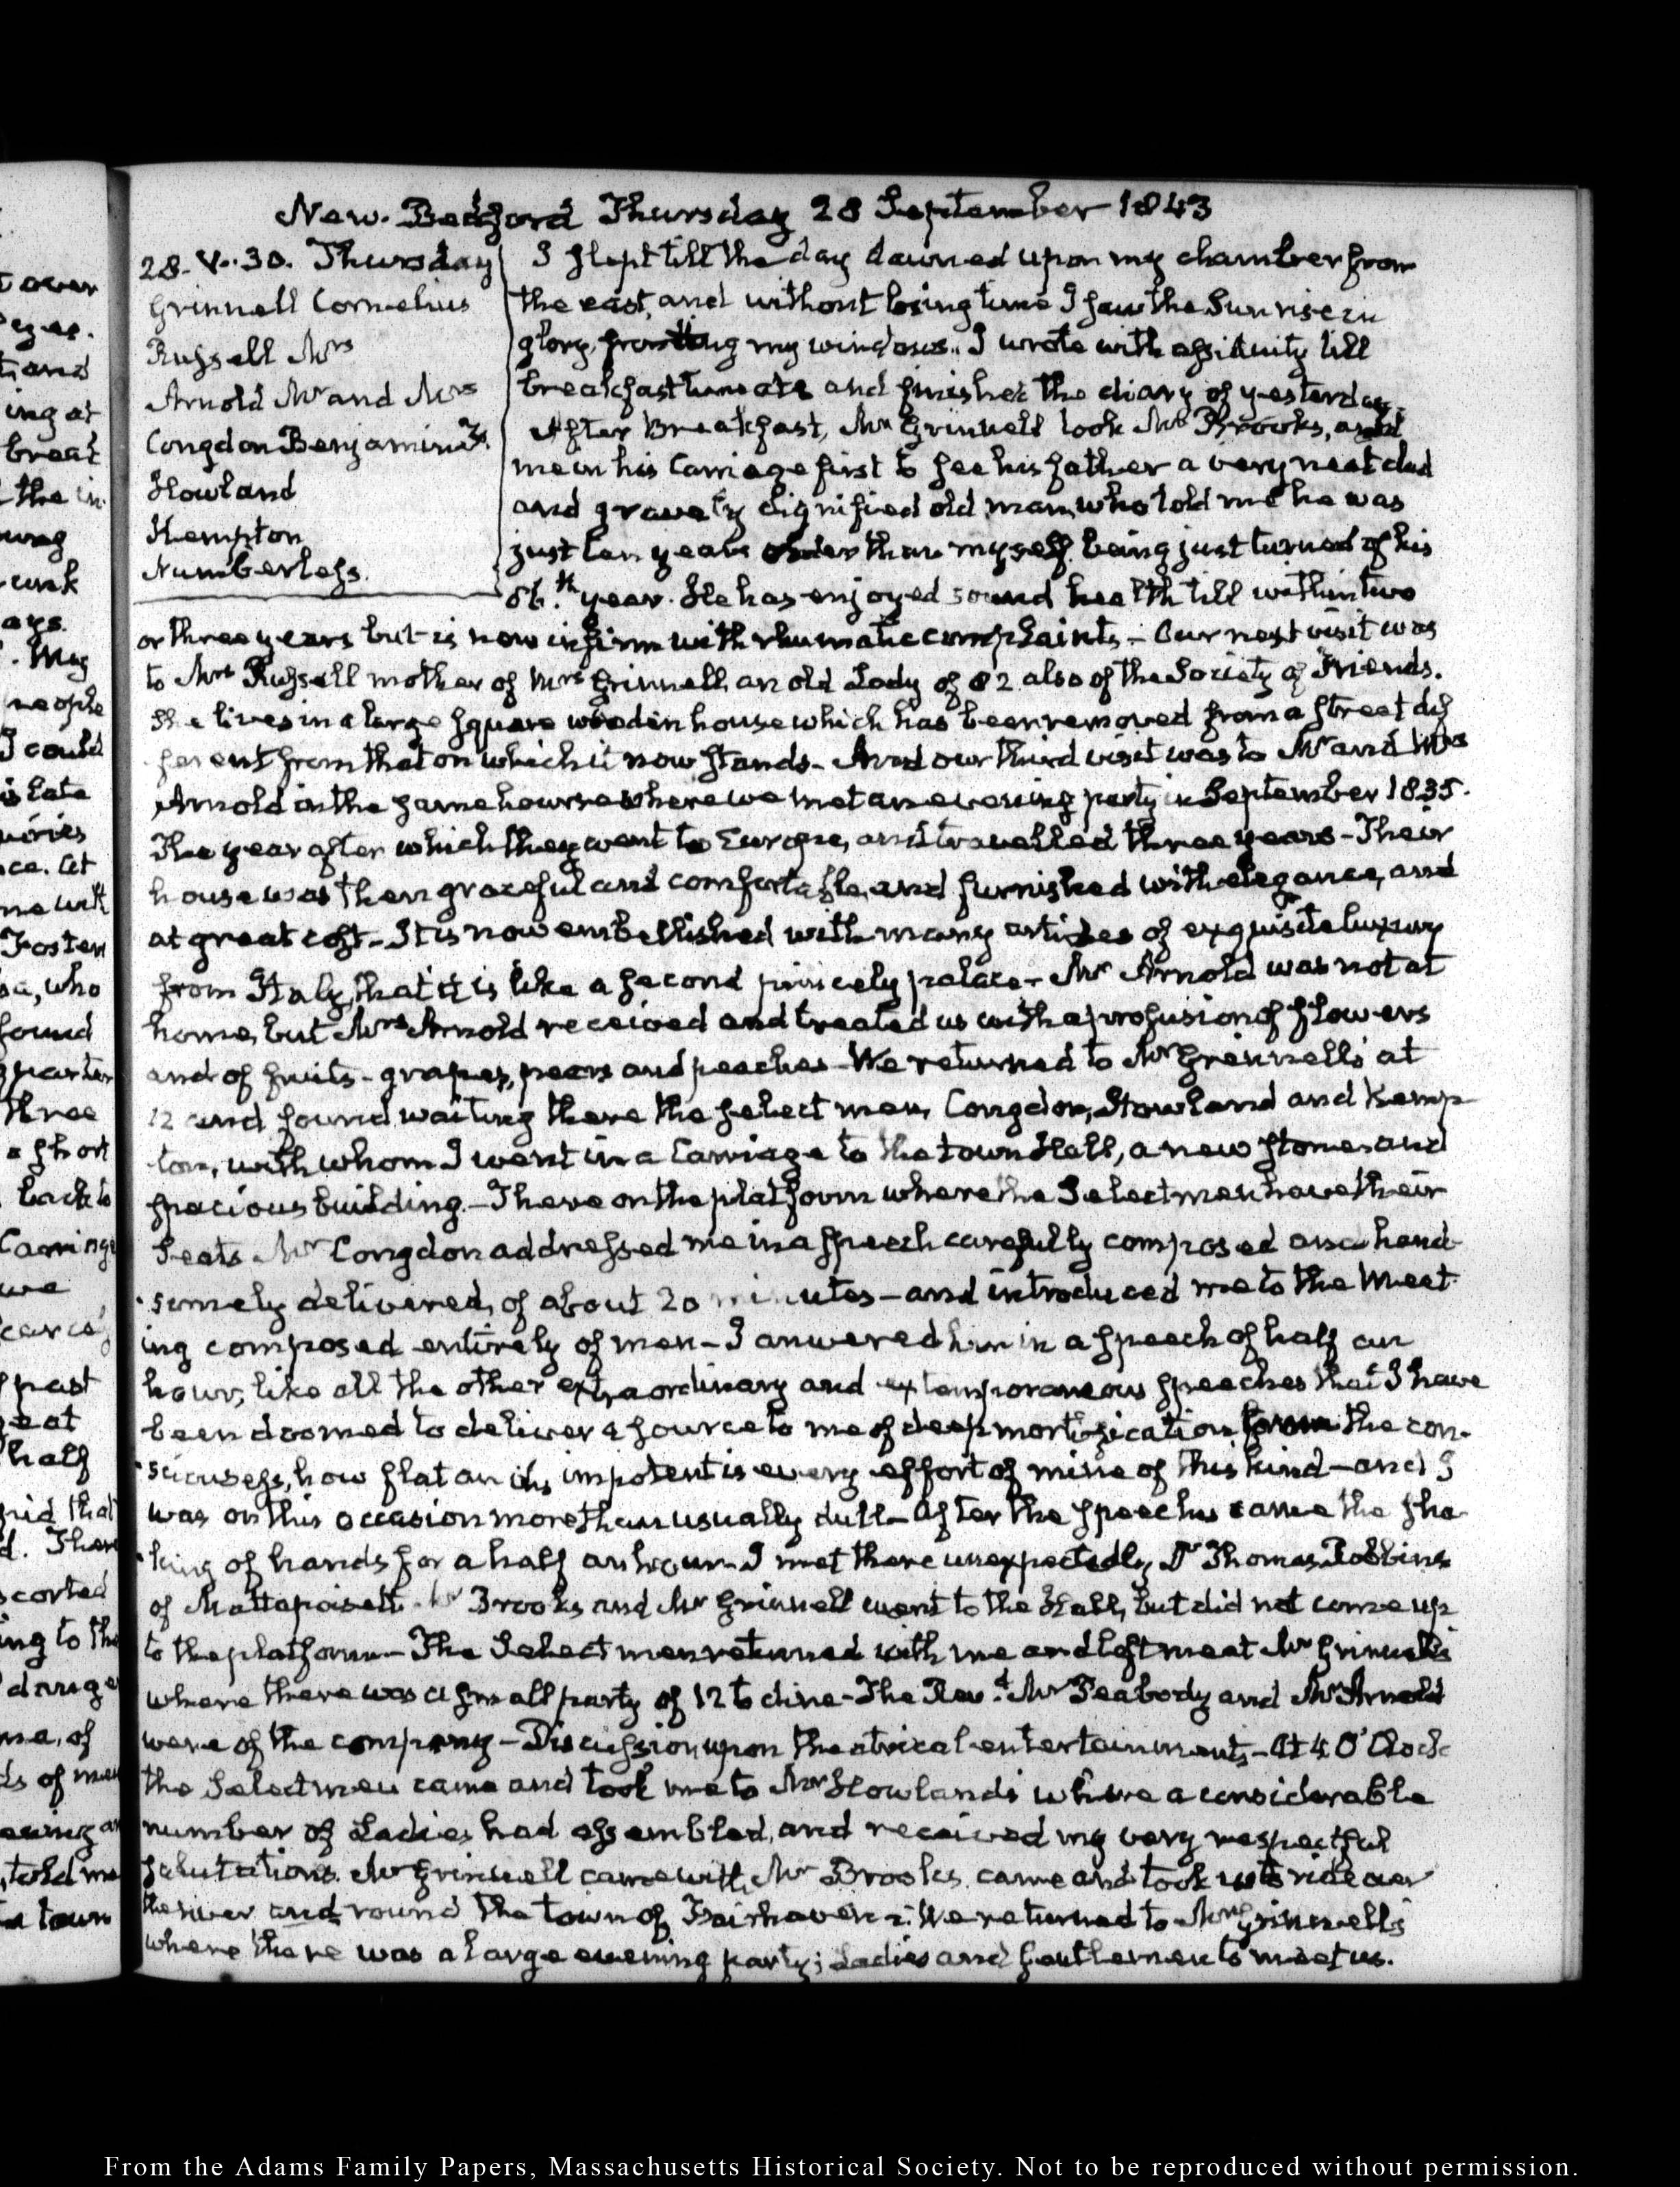 New-Bedford Thursday 28 September 1843
28. V.30. Thursday
Grinnell Cornelius
Russell Mrs
Arnold Mr and Mrs
Congdon Benjamin T.
Howland
Kempton
Numberless.
I slept till the day dawned upon my chamber from
the east, and without losing time I saw the Sun rise in
glory, fronting my windows. I wrote with assiduity till
breakfast time and finished the diary of yesterday.
After Breakfast, Mr Grinnell took Mr Brooks, and
me in his Carriage first to see his father a very neat clad
and gravely dignified old man, who told me he was
just ten years older than myself. being just turned of his
86.th year. He has enjoyed sound health till within two
or three years but is now infirm with rhumatic complaints. Our next visit was
to Mrs Russell mother of Mrs Grinnell, an old Lady of 82 also of the Society of Friends.
She lives in a large square wooden house which has been removed from a street dif
ferent from that on which it now stands- And our third visit was to Mr and Mrs
Arnold in the same house where we met an evening party in September 1835.
The year after which they went to Europe, and travelled three years- Their
house was then graceful and comfortable, and furnished with elegance, and
at great cost- It is now embellished with many articles of exquisite luxury
from Italy, that it is like a second princely palace- Mr Arnold was not at
home, but Mrs Arnold received and treated us with a profusion of flowers
and of fruits- grapes, pears and peaches- We returned to Mr Grinnell's at
12 and found waiting there the select men, Congdon, Howland and Kemp-
ton, with whom I went in a Carriage to the town Hall, a new stone and
spacious building.- There on the platform where the Select men have their
seats Mr Congdon addressed me in a speech carefully composed and hand-
somely delivered, of about 20 minutes- and introduced me to the Meet-
ing composed entirely of men- I anwered him in a speech of half an
hour, like all the other extraordinary and extemporaneous speeches that I have
been doomed to deliver a source to me of deep mortification from the con-
sciousess, how flat and impotent is every effort of mine of this kind- and I
was on this occasion more than usually dull- After the speeches came the sha-
king of hands for a half an hour- I met there unexpectedly Dr Thomas Robbins
of Mattapoisett. Mr Brooks and Mr Grinnell went to the Hall, but did not come up
to the platform- The Select men returned with me and left me at Mr Grinnell's
where there was a small party of 12 to dine- The Revd Mr Peabody and Mr Arnold
were of the company- Discussion upon theatrical entertainments- At 4 O'Clock
the Selectmen came and took me to Mr Howland's where a considerable
number of Ladies had assembled, and received my very respectful
salutations. Mr Grinnell came with Mr Brooks. came and took us to ride over
the river and round the town of Fairhaven: We returned to Mr Grinnell's
where there was a large evening party; Ladies and Gentlemen to meet us.
From the Adams Family Papers, Massachusetts Historical Society. Not to be reproduced without permission.